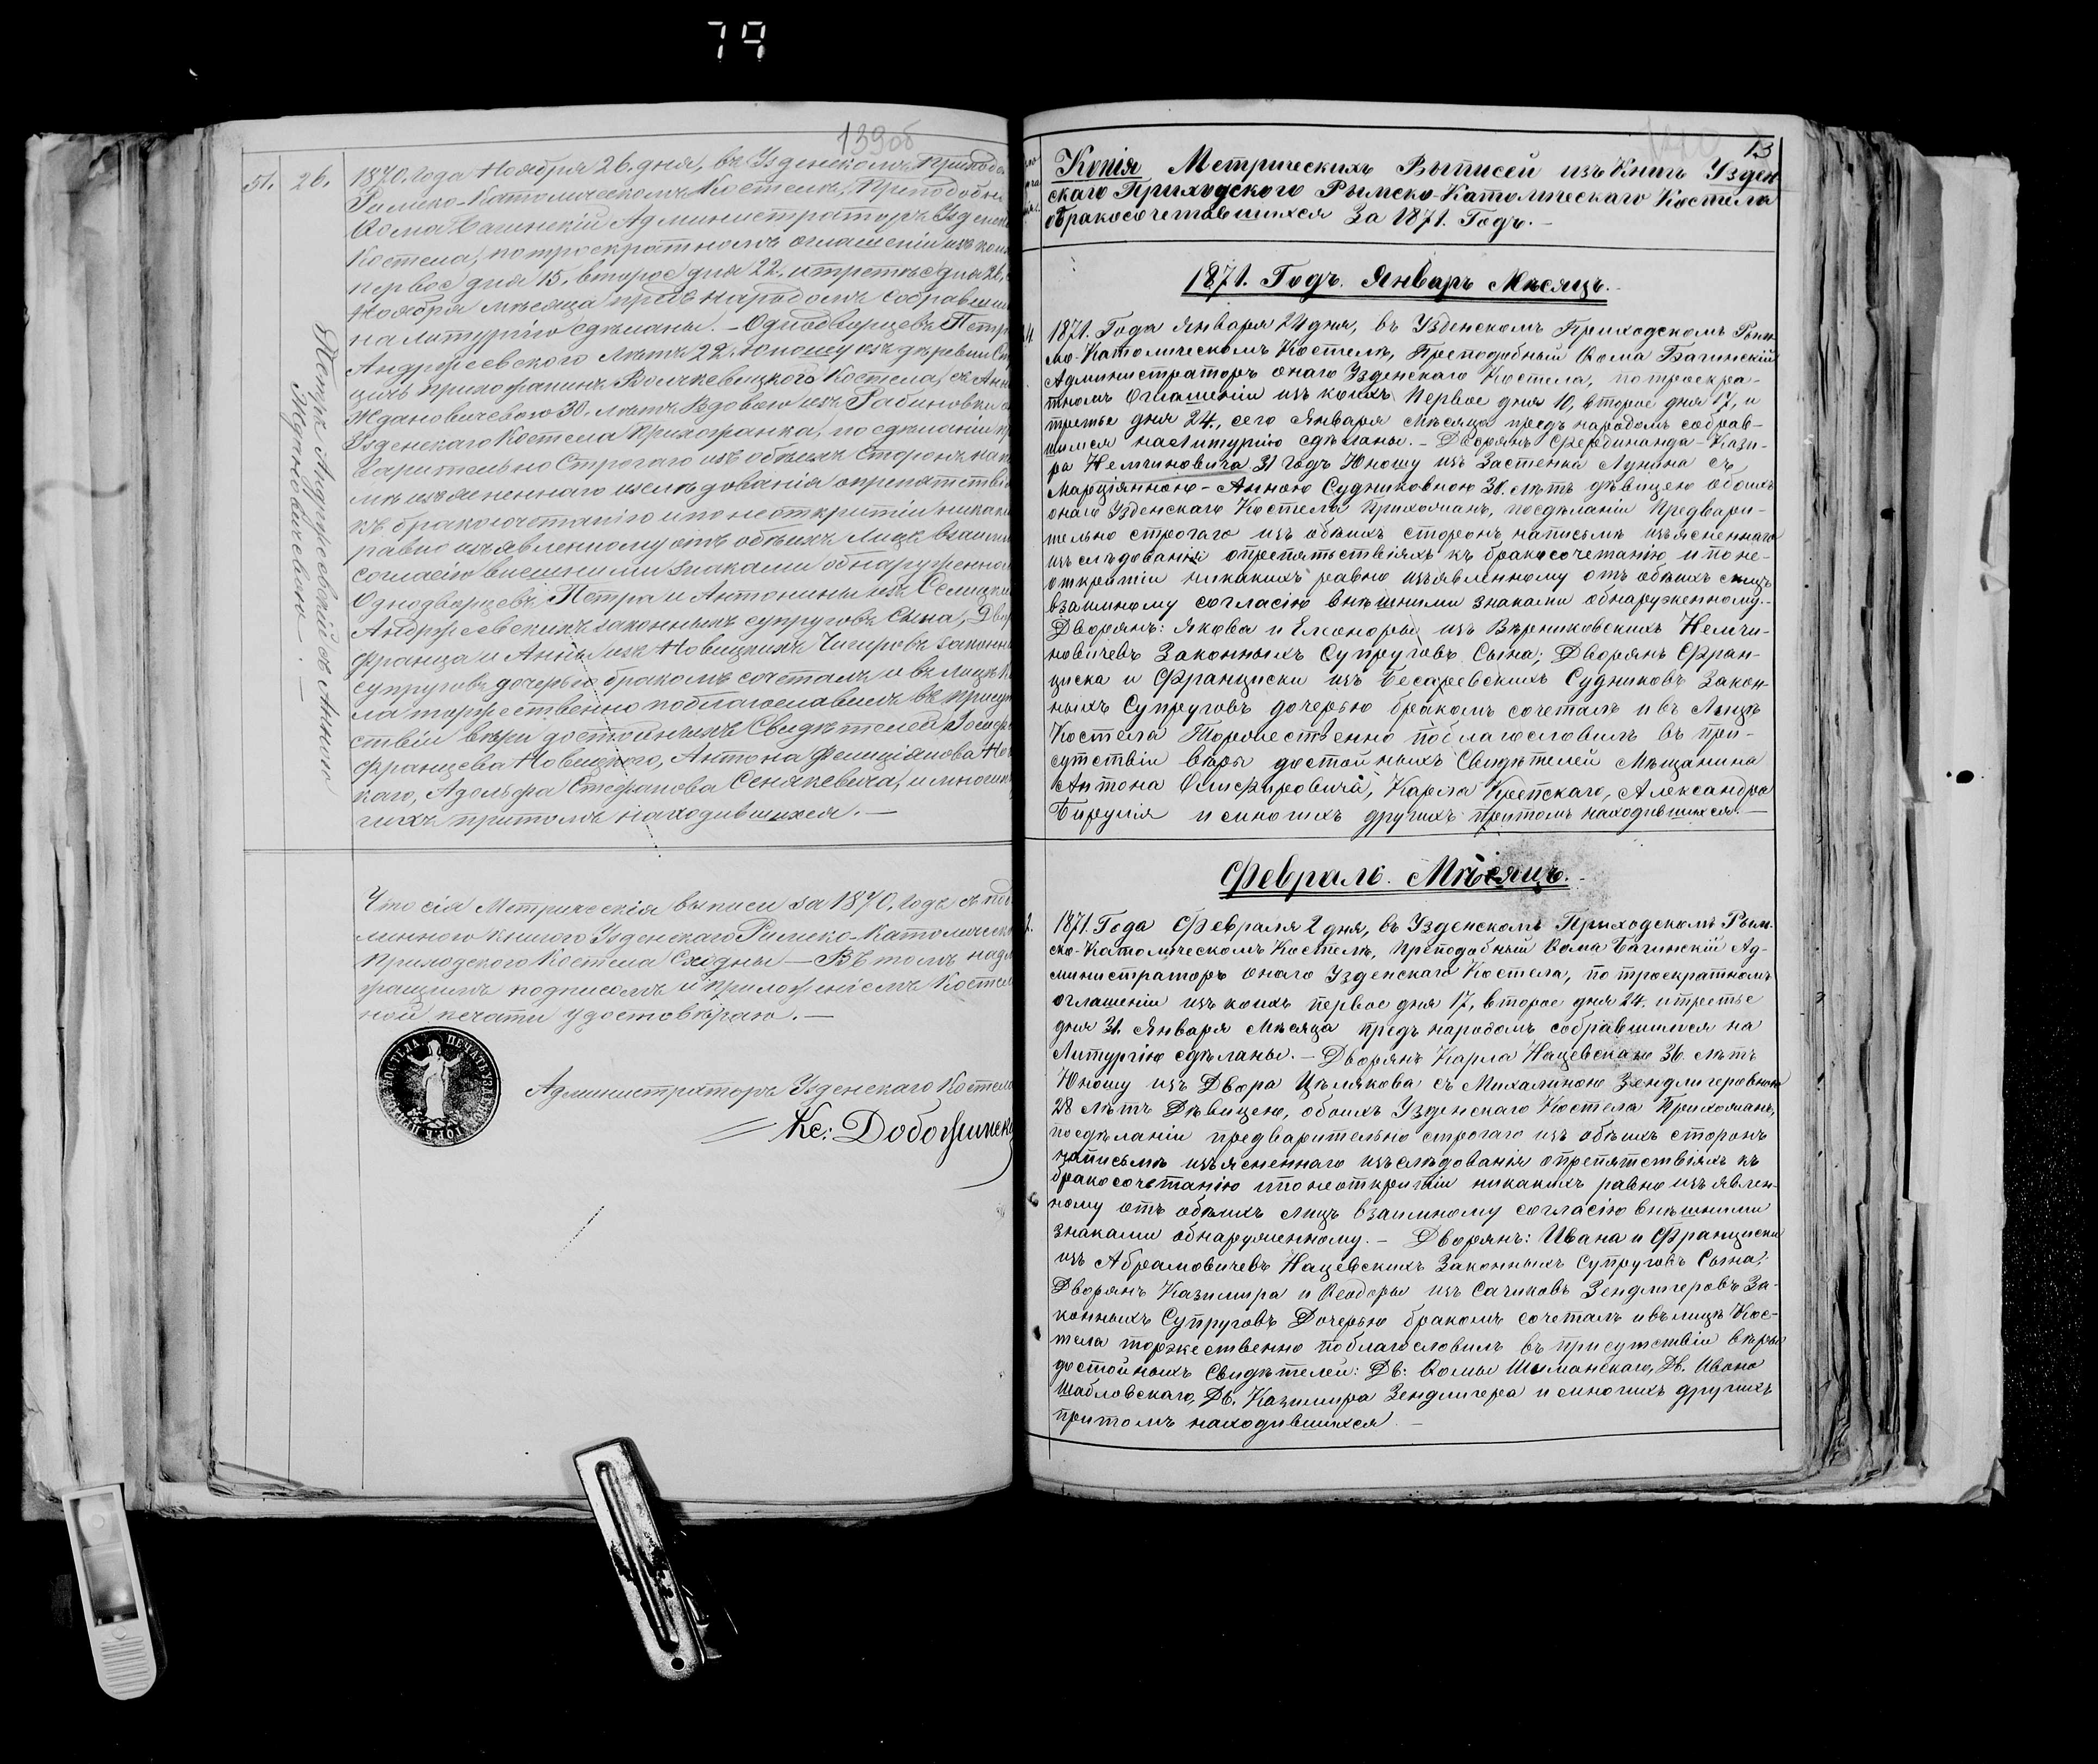 79
139об
51. 26.
Петръ Андржеевскій съ Анною
Ждановичевою. —
1870. года Ноября 26. дня, въ Узденскомъ Приходс
Римско-Католическомъ Костелѣ, Преподобны
Ѳома Багинскій Администраторъ Узденск
Костела, по троекратномъ оглашеніи изъ коих
первое дня 15. второе дня 22. и третье дня 26.
Ноября мѣсяца предъ народомъ собравшим
на литургію сдѣланы. — Однодворцевъ Петр
Андржеевского лѣтъ 22. юношу изъ деревни
цичъ прихожанинъ Волчкевицкого Костела, съ Анн
Ждановичевою 30. лѣтъ Вдовою изъ Рабиновки
Узденскаго Костела прихожанка, по сдѣланіи пр
варительно строгаго изъ обѣихъ сторонъ на п
мѣ изъясненнаго изслѣдованія о препятствія
къ бракосочетанію и по не открытіи никаки
равно изъявленному отъ обѣихъ лицъ взаимн
согласію внешними знаками обнаруженном
Однодворцевъ Петра и Антонины изъ Селицки
Андржеевскихъ законныхъ супруговъ Сына, Дво
Франца и Анны изъ Новицкихъ Чигировъ законны
супруговъ дочерью бракомъ сочеталъ и въ лицѣ К
ла торжественно поблагославилъ въ присут
ствіи вѣри достойныхъ Свидѣтелей
Францева Новицкого, Антона Фелиціянова Но
каго, Адольфа Стефанова Сенякевича, и многих
гихъ притомъ находившихся. —
Что сія Метрическія выписи за 1870. годъ съ под
линною книгою Узденскаго Римско-Католическ
Приходского Костела сходны — Въ томъ надл
жащимъ подписомъ и приложеніемъ Костел
ной печати удостовѣряю. —
Администраторъ Узденскаго Костела
Кс: Добошинск
13
Копія Метрическихъ Выписей изъ Книгъ Узден
скаго Приходского Рымско-Католическаго Костела
обракосочетавшихся За 1871. Годъ. —
1871. Годъ. Январь Мѣсяцъ. —
1871. Года Января 24 дня, въ Узденскомъ Приходскомъ Рым
ско-Католическомъ Костелѣ, Преподобный Ѳома Багинскій
Администраторъ онаго Узденскаго Костела, по троекра-
тномъ Оглашеніи изъ коихъ Первое дня 10, второе дня 17, и
третье дня 24, сего Января Мѣсяца предъ народомъ собрав-
шимся на Литургію сдѣланы. — Дворянъ Фердинанда-Кази-
ра Немчиновича 31 годъ Юношу изъ Застенка Лунина съ
Марціянною-Анною Судниковною 30. лѣтъ дѣвицею обоихъ
онаго Узденскаго Костела Прихожанъ, посдѣланіи Предвари-
тельно строгаго изъ обѣихъ сторонъ написьмѣ изъясненнаго
изслѣдованія опрепятьствіяхъ къ бракосочетанію и поне-
открытіи никакихъ равно изъявленному отъ обѣихъ лицъ
взаимному согласію внѣшними знаками обнаруженному. —
Дворянъ: Якова и Елеоноры изъ Вѣрниковскихъ Немчи-
новичевъ Законныхъ Супруговъ Сына; Дворянъ Фран-
циска и Франциски изъ Бесаревскихъ Судниковъ Закон-
ныхъ Супруговъ дочерью бракомъ сочеталъ ивъ Лицѣ
Костела Торжественно поблагословилъ въ при-
сутствіи вѣры достойныхъ Свидѣтелей Мѣщанина
Антона Кретскаго, Александра
и многихъ другихъ притомъ находившихся. —
Февраль. Мѣсяцъ. —
1871. Года Февраля 2 дня, въ Узденскомъ Приходскомъ Рым-
ско-Католическомъ Костелѣ, Преподобный Ѳома Багинскій Ад-
министраторъ онаго Узденскаго Костела, по троекратномъ
оглашеніи изъ коихъ первое дня 17, второе дня 24. и третье
дня 31. Января Мѣсяца предъ народомъ собравшимся на
Литургію сдѣланы. — Дворянъ Карла Нацевскаго 36. лѣтъ
Юношу изъ Двора Цѣлякова съ Михалиною Зендлигеровною
28 лѣтъ Дѣвицею, обоихъ Узденскаго Костела Прихожанъ,
посдѣланіи предварительно строгаго изъ обѣихъ сторонъ
написьмѣ изъясненнаго изслѣдованія опрепятствіяхъ къ
бракосочетанію ипонеоткрытіи никакихъ равно изъявлен-
ному отъ обѣихъ лицъ взаимному согласію внѣшними
знаками обнаруженному. — Дворянъ: Ивана и Франциски
изъ Абрамовичевъ Нацевскихъ Законныхъ Супруговъ Сына;
Дворянъ Казимира и Ѳеодоры изъ Сачковъ Зендлигеровъ За-
конныхъ Супруговъ Дочерью бракомъ сочеталъ ивълицѣ Кос-
тела торжественно поблагословилъ въ присутствіи вѣры
достойныхъ Свидѣтелей: Дв: Ѳомы Шиманскаго, Дв. Ивана
Шабловскаго, Дв. Казимира Зендлигера и многихъ другихъ
притомъ находившихся. —